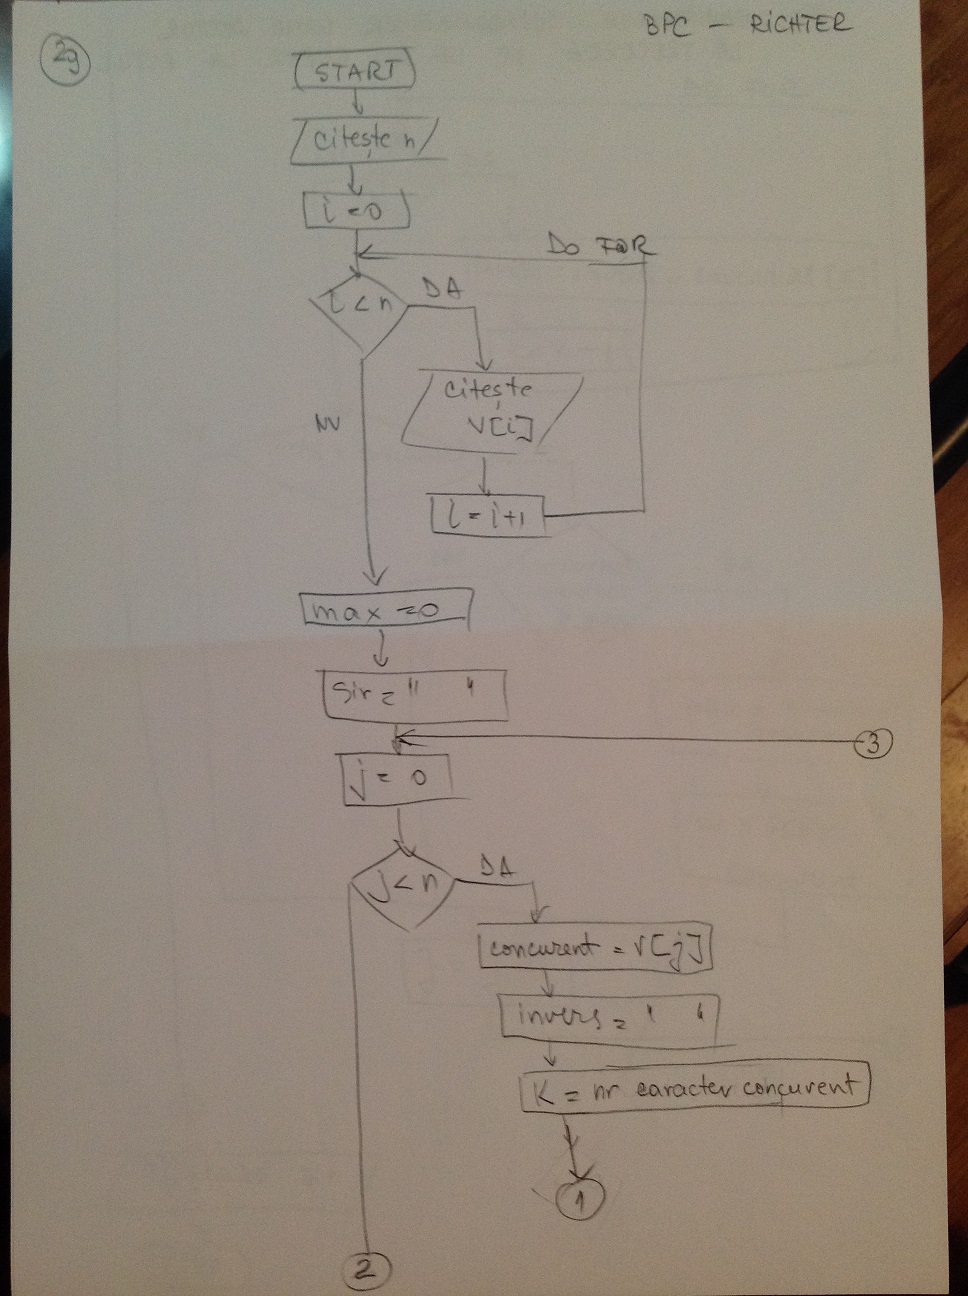 BPC - RICHTER
2g
START
Citește n
i = 0
Do FOR
i < n DA
citește
v[i]
NU
i = i+1
max = 0
Sir = " "
3
j = 0
j < n DA
concurent = v[j]
invers = ' '
K = nr caracter concurent
1
2